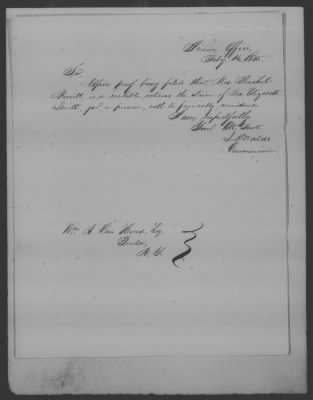 Pension Office,
Feby 14, 1855
Sir,
Upon proof being filed that Mrs. Rachel
is a credible witness the claim of Mrs. Elizabeth
for a pension, will be favorably considered
I am, respectfully
Your Obt. Servt
L. P. Waldo
Commissioner
Wm. A. Van Esq.
N. Y.